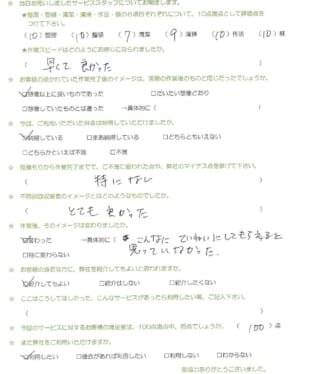 ★ 当日お伺いしましたサービススタッフについてお聞きします。
★態度・整頓・清潔・清掃・作法・様の6項目それぞれについて、10点満点として評価点を
つけて下さい。
(10)態度 (10)整頓 (7)清潔 (9)清掃 (10)作法 (10)様
★作業スピードはどのようにお感じになられましたか。
( 早くて良かった )
★ お客様の描かれていた作業完了後のイメージは、実際の作業後のものと同じだったでしょうか。
☑想像以上に良いものであった □だいたい想像どおり
□想像していたものとは違った →具体的に( )
★ 今回、ご利用いただいた料金は納得していただけましたか。
☑納得している □まあ納得している □どちらともいえない
□どちらかといえば不満 □不満
★ 見積もりから作業完了までで、ご不満に思われた点や、弊社のマイナス点を挙げて下さい。
( 特になし )
★ 不用品回収業者のイメージとはどのようなものでしたか。
( とても良かった )
★ 作業後、そのイメージは変わりましたか。
☑変わった →具体的に( こんなに ていねいにしてもらえると
思っていなかった。 )
□特に変わらない
★ お客様の身近な方に、弊社を紹介してもよいと思われますか。
☑紹介してもよい □紹介はしない □紹介したくない
★ ここはこうしてほしかった、こんなサービスがあったら利用したい等、ご記入下さい。
( )
★ 今回のサービスに対するお客様の満足度は、100点満点中、何点でしょうか。 (100)点
★ また弊社をご利用いただけますか。
☑利用したい □機会があれば利用したい □利用しない □わからない
ご協力ありがとうございました。